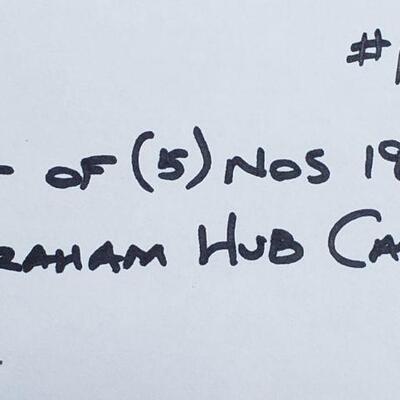 #
OF (5) NOS 19
RAHAM HUB CA